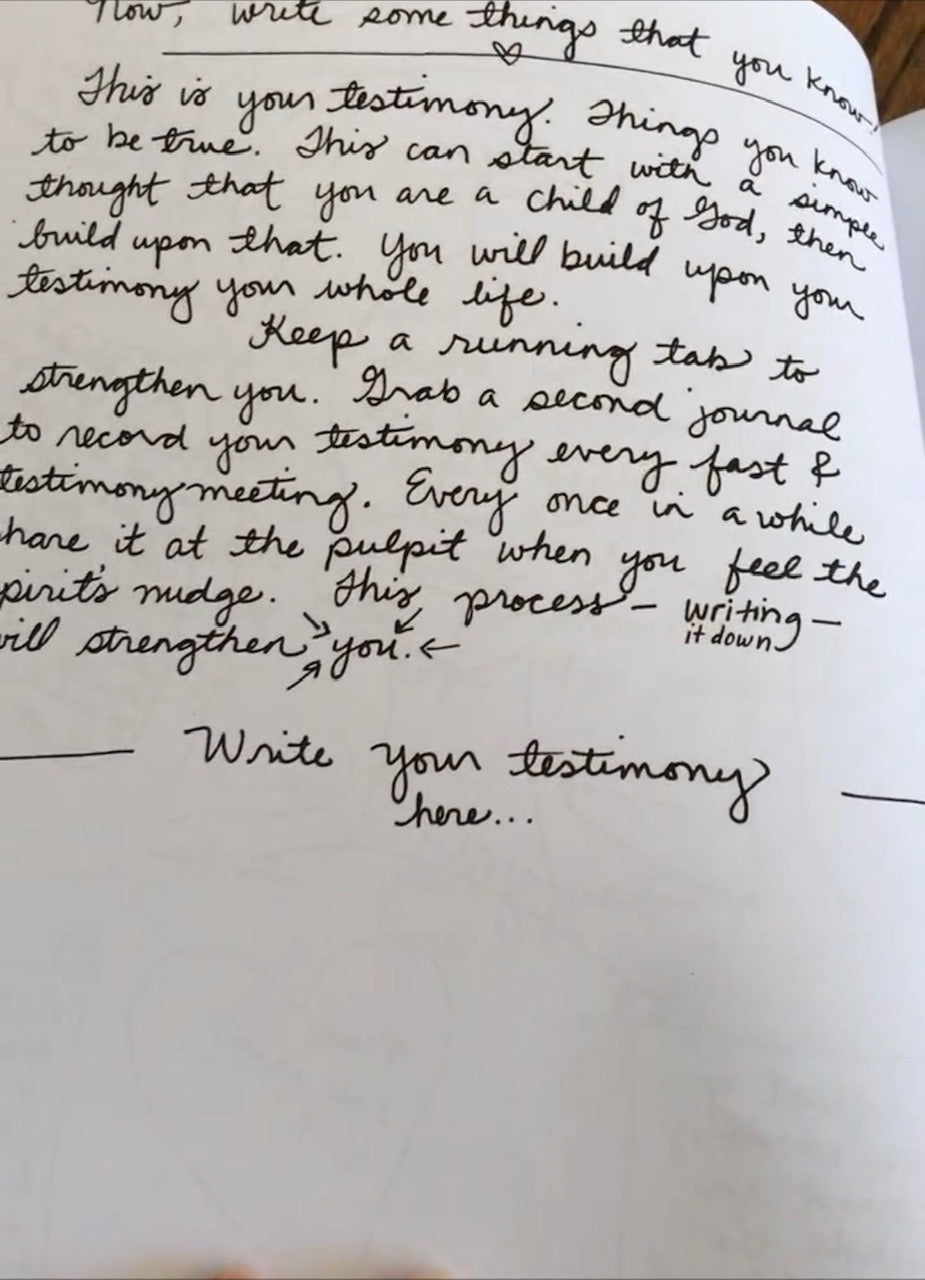 Now, write some things that you know!
This is your testimony. Things you know
to be true. This can start with a simple
thought that you are a child of God, then
build upon that. You will build upon your
testimony your whole life.
Keep a running tab to
strengthen you. Grab a second journal
to record your testimony every fast &
testimony meeting. Every once in a while
hare it at the pulpit when you feel the
pirit's nudge. This process – writing it down –
ill strengthen you.
Write your testimony
here...